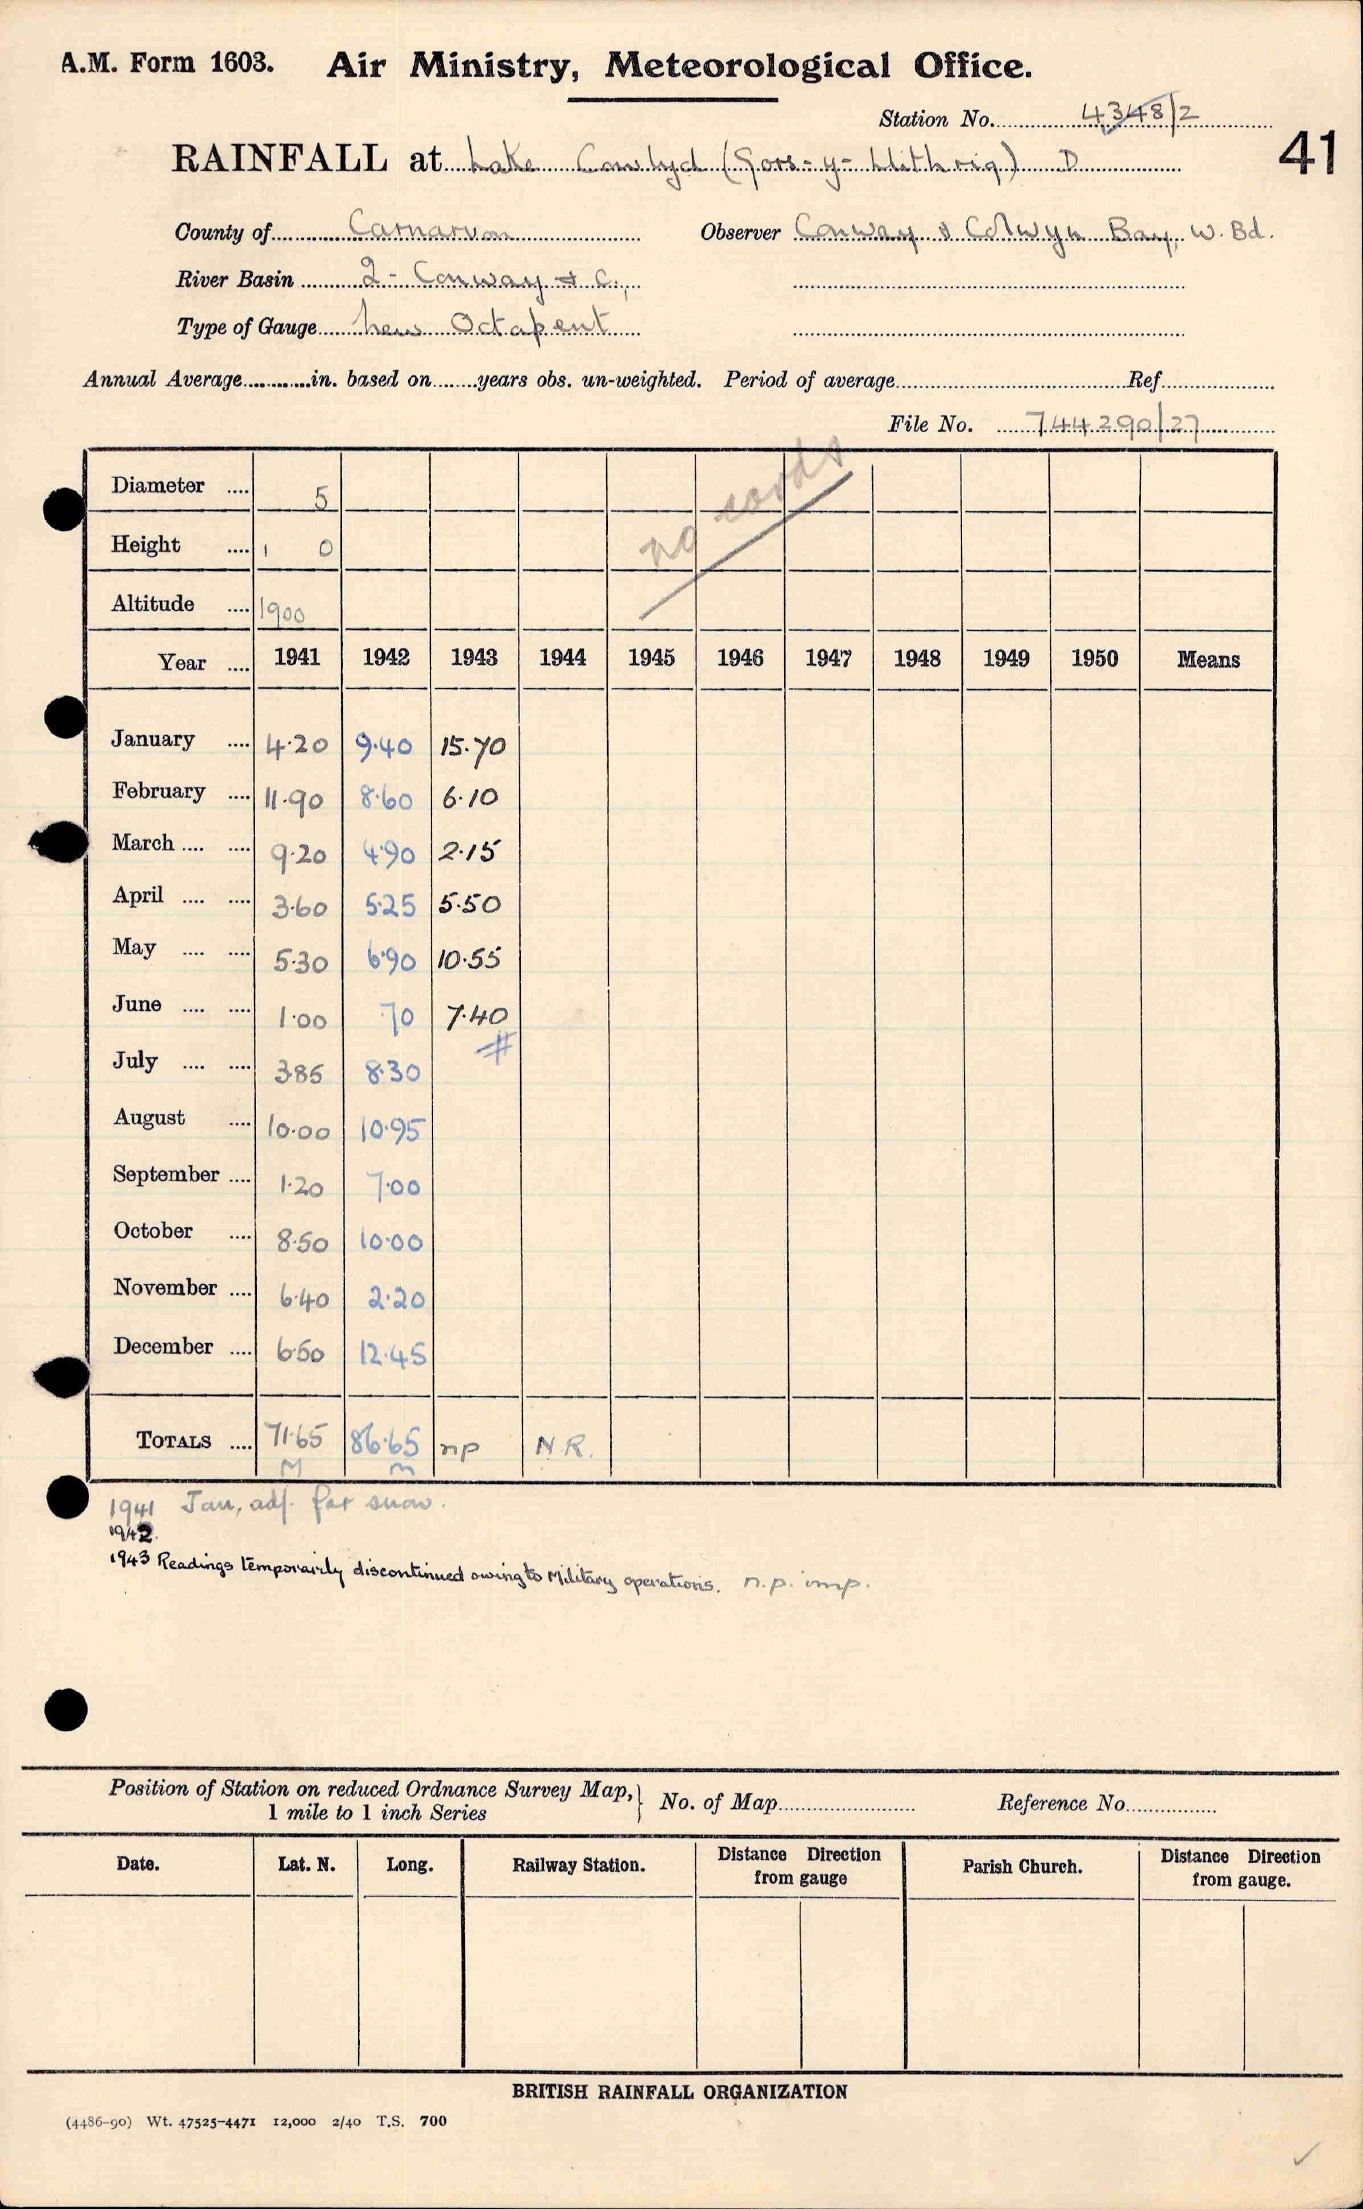 A.M. Form 1603. Air Ministry, Meteorological Office.
Station No. 4348/2
41
RAINFALL at Lake Cowlyd (Gors-y-Llithrig) D
County of Carnarvon Observer Conway & Colwyn Bay, W. Bd.
River Basin 2 - Conway & C.,
Type of Gauge New Octapent
Annual Average in. based on years obs. un-weighted. Period of average Ref
File No. 744290/27
no cards
Diameter 5
Height 1 0
Altitude 1900
Year 1941 1942 1943 1944 1945 1946 1947 1948 1949 1950 Means
January 4.20 9.40 15.70
February 11.90 8.60 6.10
March 9.20 4.90 2.15
April 3.60 5.25 5.50
May 5.30 6.90 10.55
June 1.00 .70 7.40
#
July 3.85 8.30
August 10.00 10.95
September 1.20 7.00
October 8.50 10.00
November 6.40 2.20
December 6.50 12.45
TOTALS 71.65 86.65 np N.R.
M m
1941 Jan, adj. for snow.
1942.
1943 Readings temporarily discontinued owing to Military operations. n.p. imp.
Position of Station on reduced Ordnance Survey Map, No. of Map Reference No.
1 mile to 1 inch Series
Date. Lat. N. Long. Railway Station. Distance Direction from gauge Parish Church. Distance Direction from gauge.
BRITISH RAINFALL ORGANIZATION
(4486-90) Wt. 47525-4471 12,000 2/40 T.S. 700